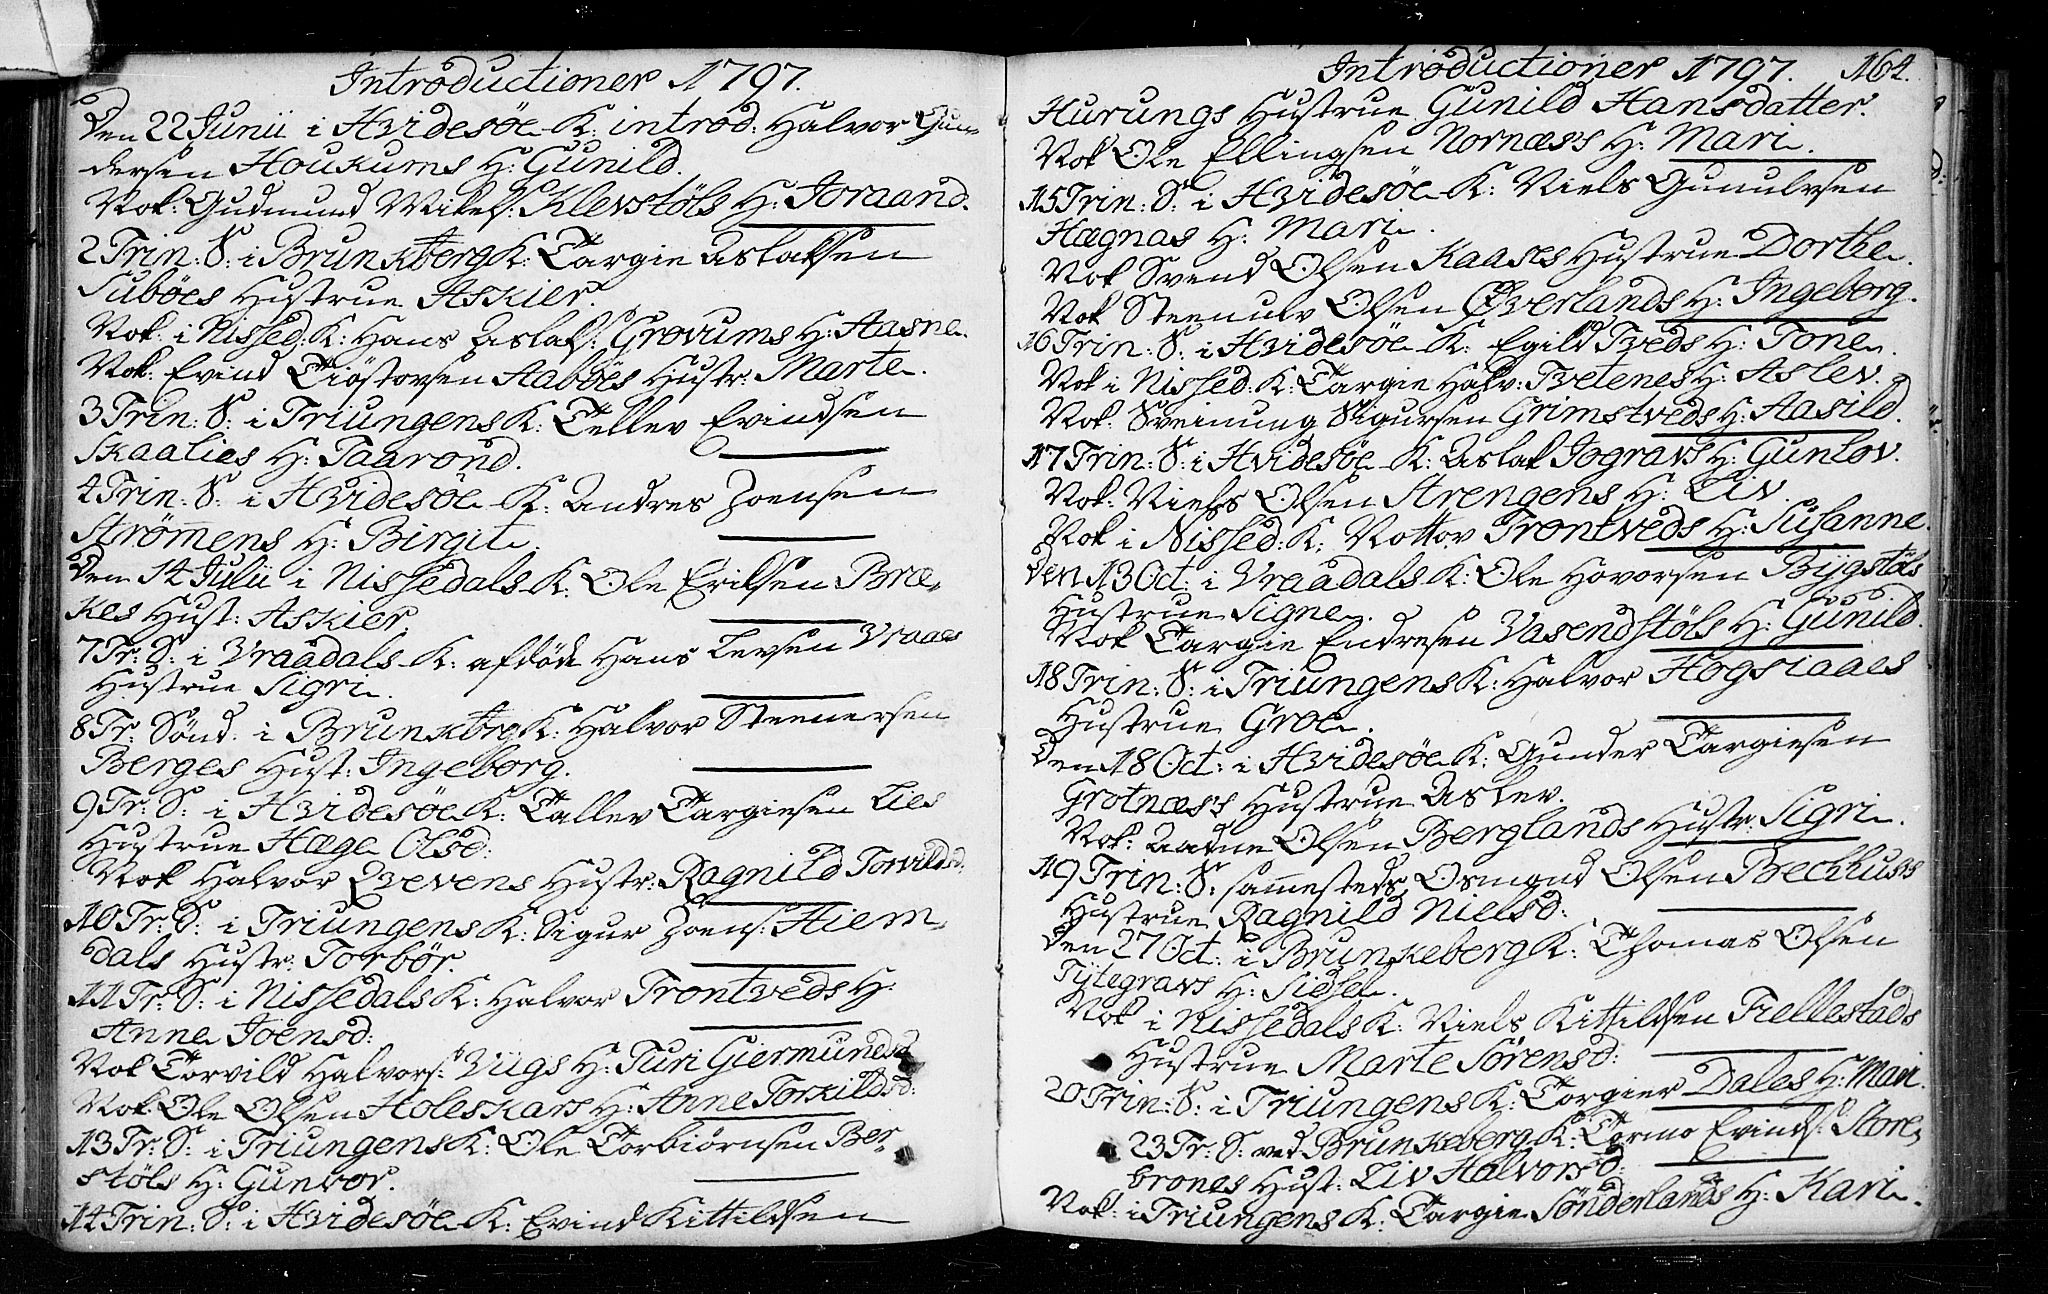 Introductioner 1797.
Den 22 Junii i Hvidesøe K: introd: Halvor Gun-
dersen Houkums H: Gunild.
Nok: Gudmund Mikels: Klevstöls H: Joraand.
2 Trin: S: i Brunkberg K: Targie Aslaksen
Suböes Hustrue Askier.
Nok: i Nissed: K: Hans Aslaks: Grovums H: Aasne.
Nok: Evind Tiøstovsen Aabøes Hustr: Marte.
3 Trin: S: i Triungens K: Tellev Evindsen
Skaalies H: Taarond.
4 Trin: S: i Hvidesøe K: Andres Joensen
Strömens H: Birgit.
Den 14 Julii i Nissedals K: Ole Erilsen Bræ-
kes Hust: Askier.
7 Tr: S: i Vraadals K: afdøde Hans Levsen Vraaes
Hustrue Sigri.
8 Tr: Sönd: i Brunkebrg K: Halvor Steenersen
Berges Hust: Ingeborg.
9 Tr: S: i Hvidesøe K: Tallev Targiesen Lies
Hustrue Hæge Olsd:
Nok Halvor Qvevens Hustr: Ragnild Torvildsd:
10 Tr: S: i Triungens K: Sigur Joens: Hiem-
dals Hustr: Torbør.
11 Tr: S: i Nissedals K: Halvor Trontveds H:
Anne Joensd:
Nok Torvild Halvors: Vügs H: Turi Giermundsd
Nok: Ole Olsen Holeskars H: Anne Torkildsd:
13 Tr: S: i Triungens K: Ole Torbiörnsen Ber-
stöls H: Gunvor.
14 Trin: S: i Hvidesøe K: Evind Kittilsen
Introductioner 1797. 164.
Hurungs Hustrue Gunild Hansdatter.
Nok Ole Ellingsen Nornæs's H: Mari.
15 Trin: S: i Hvidesøe K: Niels Gunulvsen
Hægnas H: Mari.
Nok Svend Olsen Kaases Hustrue Dorthe.
Nok Steenulv Olsen Øverlands H: Ingeborg.
16 Trin: S: i Hvidesøe K: Egild Tveds H: Tone.
Nok i Nissed: K: Targie Halv: Tvetenes H: Aslev.
Nok: Sveinung Sigursen Grimstveds H: Aasild.
17 Trin: S: i Hvidesøe K: Aslak Jogravs H: Gunlov.
Nok: Niels Olsen Strengens H: Liv.
Nok i Nissed: K: Nottov Trontveds H: Susanne.
Den 13 Oct: i Vraadals K: Ole Hovorsen Bygstöls
Hustrue Signe.
Nok Targie Endresen Vasendstöls H: Gunild.
18 Trin: S: i Triungens K: Halvor Hogsiaaes
Hustrue Groe.
Den 18 Oct: i Hvidesøe K: Gunder Targiesen
Grotnæs's Hustrue Aslev.
Nok: Aadne Olsen Berglands Hustr: Sigri.
19 Trin: S: sammesteds Osmund Olsen Bechhuss
Hustrue Ragnild Nielsd:
Den 27 Oct: i Brunkeberg K: Thomas Olsen
Tytegravs H: Sidsel.
Nok i Nissedals K: Niels Kittilsen Fiellestads
Hustrue Marte Sörensd:
20 Trin: S: i Triungens K: Torgier Dales H: Mari.
23 Tr: S: ved Brunkeberg K: Tormo Evinds: Store-
brones Hust: Liv Halvorsd:
Nok: i Triungens K: Targie Sönderlands H: Kari.